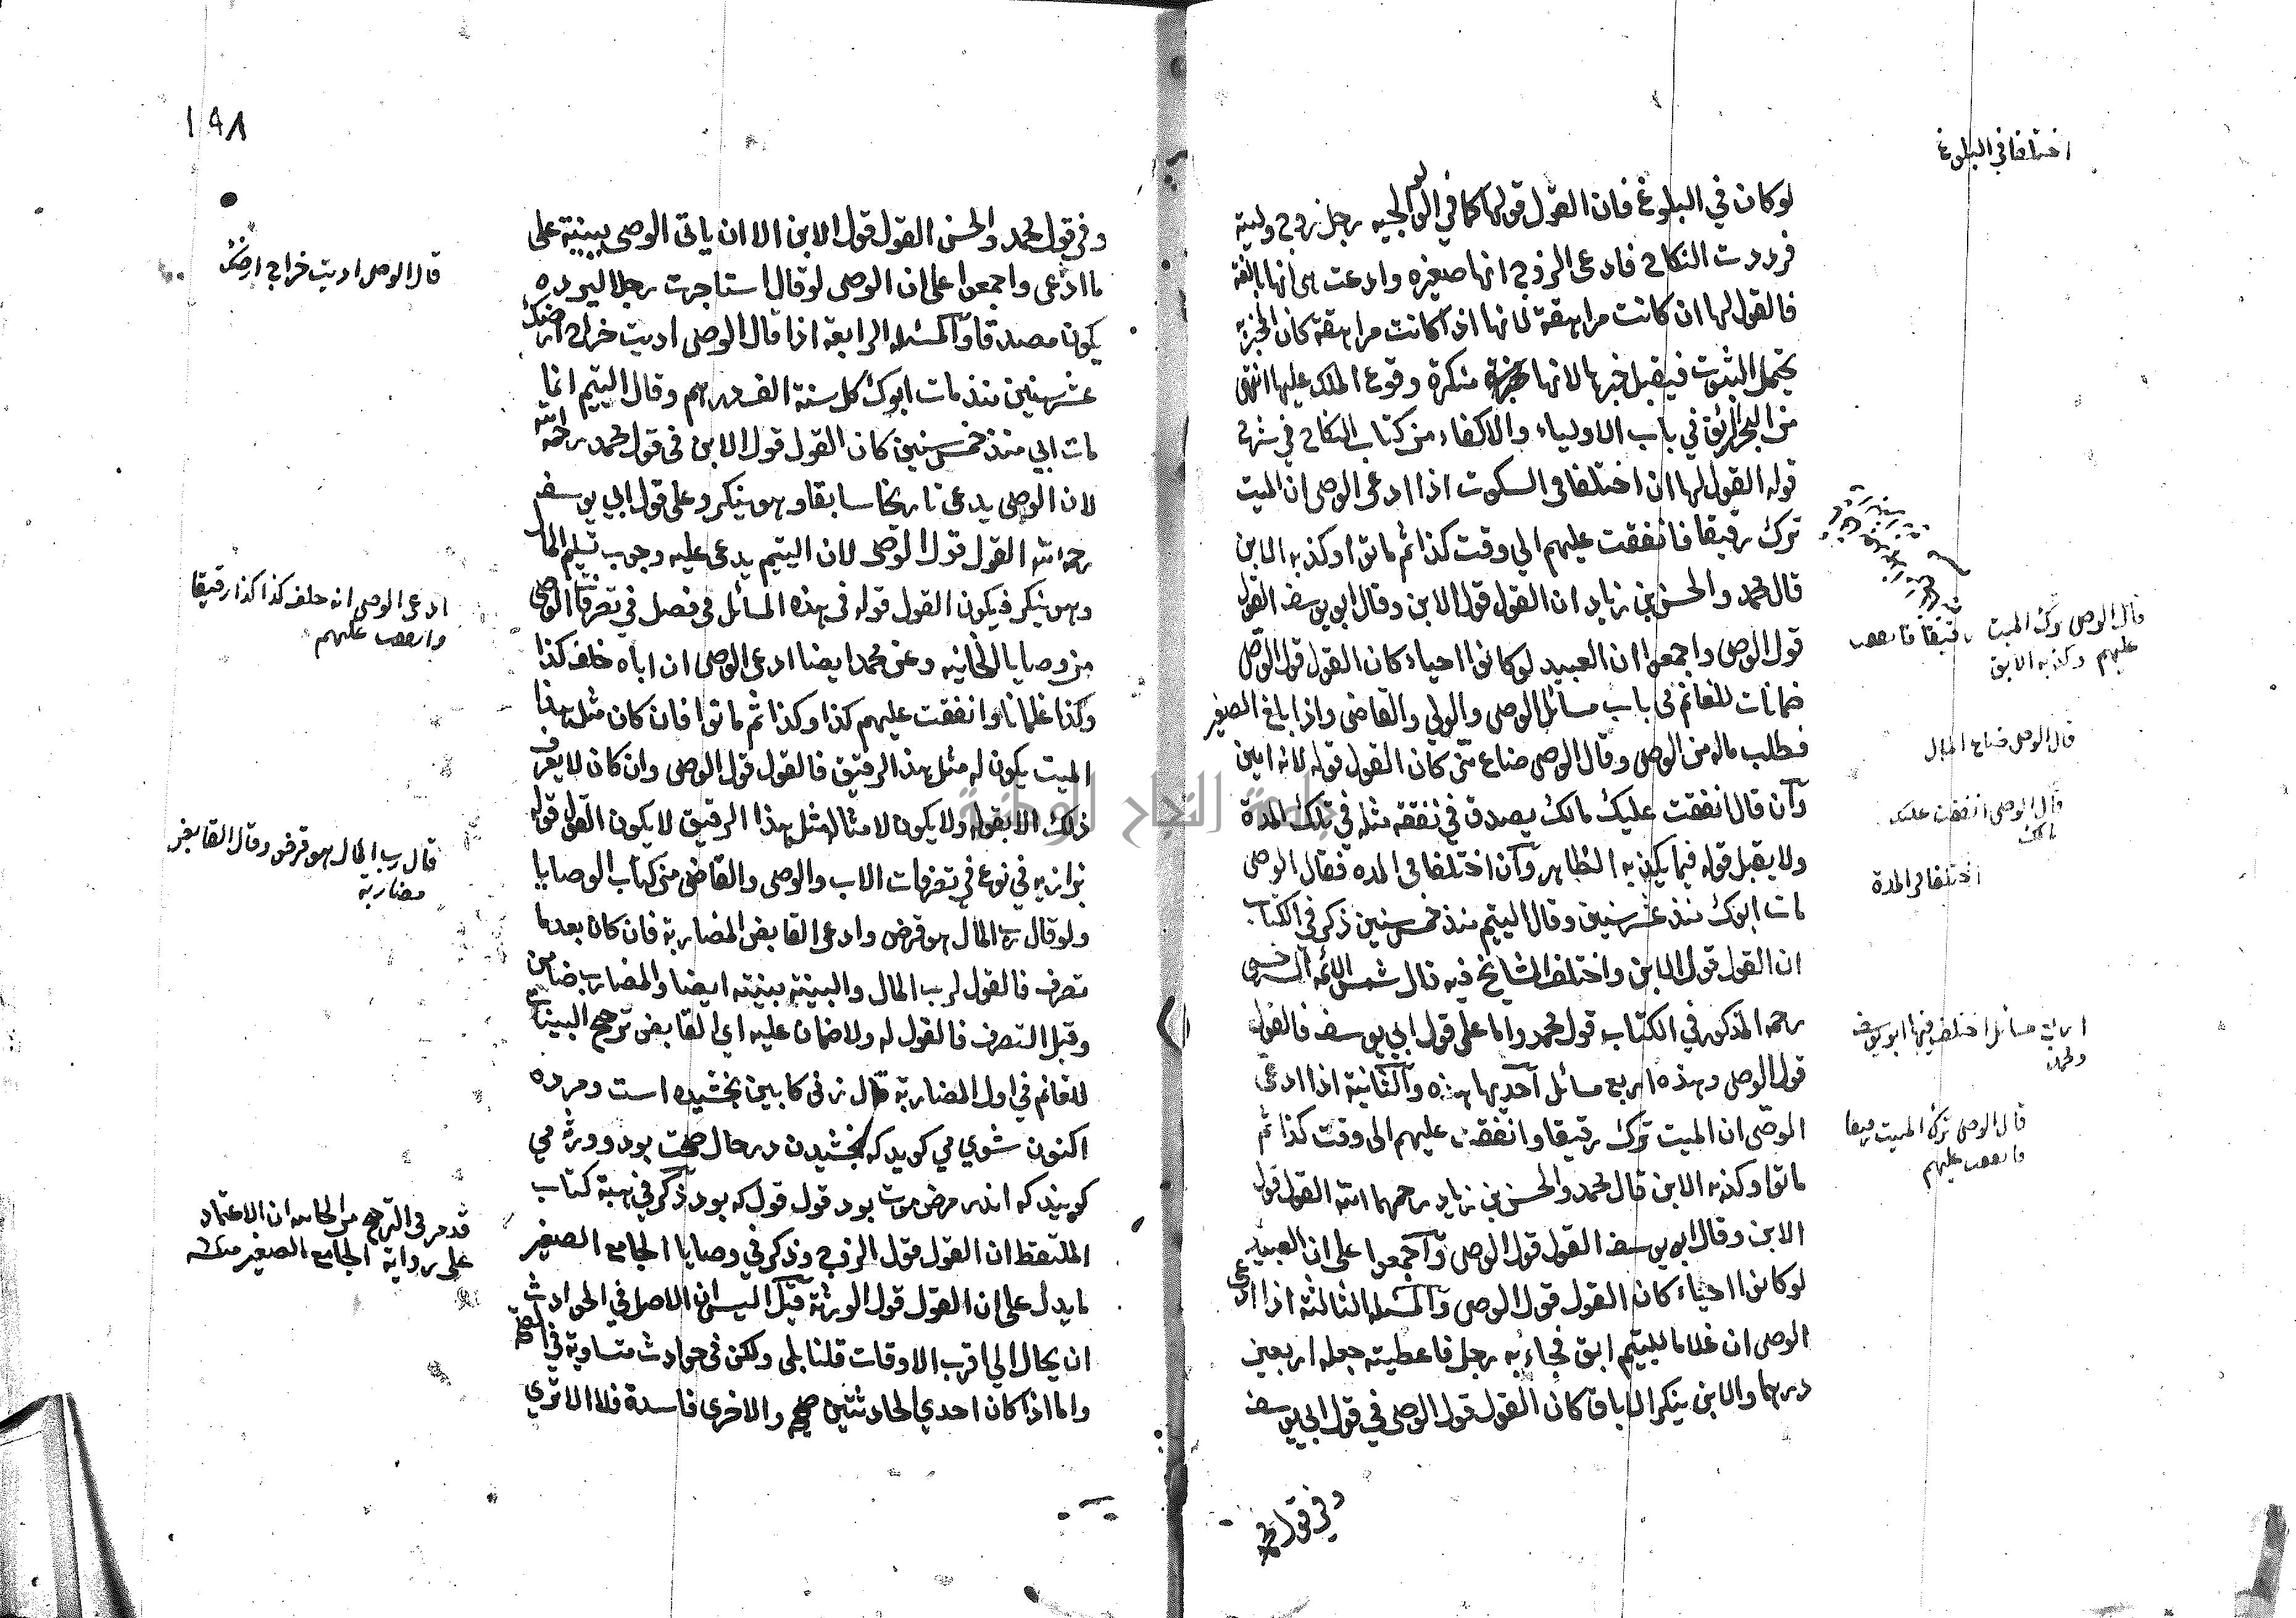 اختلفا في البلوغ
لو كان في البلوغ فان القول قولها كما في الولوالجيه رجل زوج وليته
فردت النكاح فادعى الزوج انها صغيره وادعت هى انها بالغة
فالقول لها ان كانت مراهقة لانها اذا كانت مراهقة كان المخبر به
يحتمل الثبوت فيقبل خبرها لانها منكرة وقوع الملك عليها انتهى
من البحر الرائق في باب الاولياء والاكفاء من كتاب النكاح في شرح
قوله القول لها ان اختلفا في السكوت اذا ادعى الوصى ان الميت
ترك رقيقا فانفقت عليهم الي وقت كذا ثم ماتوا وكذبه الابن
قال محمد والحسن بن زياد ان القول قول الابن وقال ابو يوسف القول
قول الوصى واجمعوا ان العبيد لو كانوا احياء كان القول قول الوصى
ضمانات للغانم في باب مسائل الوصى والولي والقاضى واذا بلغ الصغير
فطلب ماله من الوصى وقال الوصى ضاع منى كان القول قوله لانه امين
وان قال انفقت عليك مالك يصدق في نفقة مثله في تلك المدة
ولا يقبل قوله فيما يكذبه الظاهر وان اختلفا في المده فقال الوصى
مات ابوك منذ عشر سنين وقال اليتيم منذ خمس سنين ذكر في الكتاب
ان القول قول الابن واختلف المشايخ فيه قال شمس الائمه السرخسى
رحمه المذكور في الكتاب قول محمد واما على قول ابي يوسف فالقول
قول الوصى وهذه اربع مسائل احديها هذه والثانية اذا ادعى
الوصى ان الميت ترك رقيقا وانفقت عليهم الى وقت كذا ثم
ماتوا وكذبه الابن قال محمد والحسن بن زياد رحمهما الله القول قول
الابن وقال ابو يوسف القول قول الوصى واجمعوا على ان العبيد
لو كانوا احياء كان القول قول الوصى والمسئله الثالثة اذا ادعى
الوصى ان غلاما لليتيم ابق فجاء به رجل فاعطيته جعله اربعين
درهما والابن ينكر الاباق كان القول قول الوصى في قول ابي يوسف
وفي قول محمد
قال الوصى ترك الميت رقيقا
عليهم وكذبه الابن
قال الوصى ضاع المال
قال الوصى انفقت عليك
مالك
اختلفا في المدة
اربع مسائل اختلف فيها ابو يوسف
ومحمد
قال الوصى ترك الميت رقيقا
عليهم
١٩٨
وفي قول محمد والحسن القول قول الابن الا ان ياتى الوصى ببينة على
ما ادعى واجمعوا على ان الوصى لو قال استاجرت رجلا ليرده
يكون مصدقا والمسئله الرابعة اذا قال الوصى اديت خراج ارضك
عشر سنين منذ مات ابوك كل سنة الف درهم وقال اليتيم انما
مات ابي منذ خمس سنين كان القول قول الابن في قول محمد رحمه الله
لان الوصى يدعى تاريخا سابقا وهو ينكر وعلى قول ابي يوسف
رحمه الله القول قول الوصى لان اليتيم يدعى عليه وجوب تسليم المال
وهو ينكر فيكون القول قوله في هذه المسائل في فصل في تصرفات الوصى
من وصايا الخانيه وعن محمد ايضا ادعى الوصى ان اباه خلف كذا
وكذا غلمانا وانفقت عليهم كذا وكذا ثم ماتوا فان كان مثل هذا
الميت يكون له مثل هذا الرقيق فالقول قول الوصى وان كان لا يعرف
ذلك الا بقوله ولا يكون لامثاله مثل هذا الرقيق لا يكون القول قوله
بزازيه في نوع في تصرفات الاب والوصى والقاضى من كتاب الوصايا
ولو قال رب المال هو قرض وادعى القابض المضاربة فان كان بعدما
تصرف فالقول لرب المال والبينة بينته ايضا والمضارب ضامن
وقبل التصرف فالقول له ولا ضمان عليه اي القابض ترجيح البينات
للغانم في اول المضاربة قال زنى كابين بخشيده است ومرده
اكنون شوي مي كويد كه بخشيدن در حال صحت بود وورثه مي
كويند كه اندر مرض موت بود قول قول كه بود ذكر في هبة كتاب
الملتقط ان القول قول الزوج وذكر في وصايا الجامع الصغير
ما يدل على ان القول قول الورثة قيل اليس ان الاصل في الحوادث
ان يحال الي اقرب الاوقات قلنا بلى ولكن في حوادث متساوية في الصحة
واما اذا كان احدي الحادثتين صحيح والاخرى فاسدة فلا الا تري
قال الوصى اديت خراج ارضك
ادعى الوصى انه خلف كذا كذا رقيقا
عليهم
قال رب المال هو قرض وقال القابض
مضاربة
قد مر في الترجيح ان الاعتماد
على رواية الجامع الصغير
جامعة النجاح الوطنية